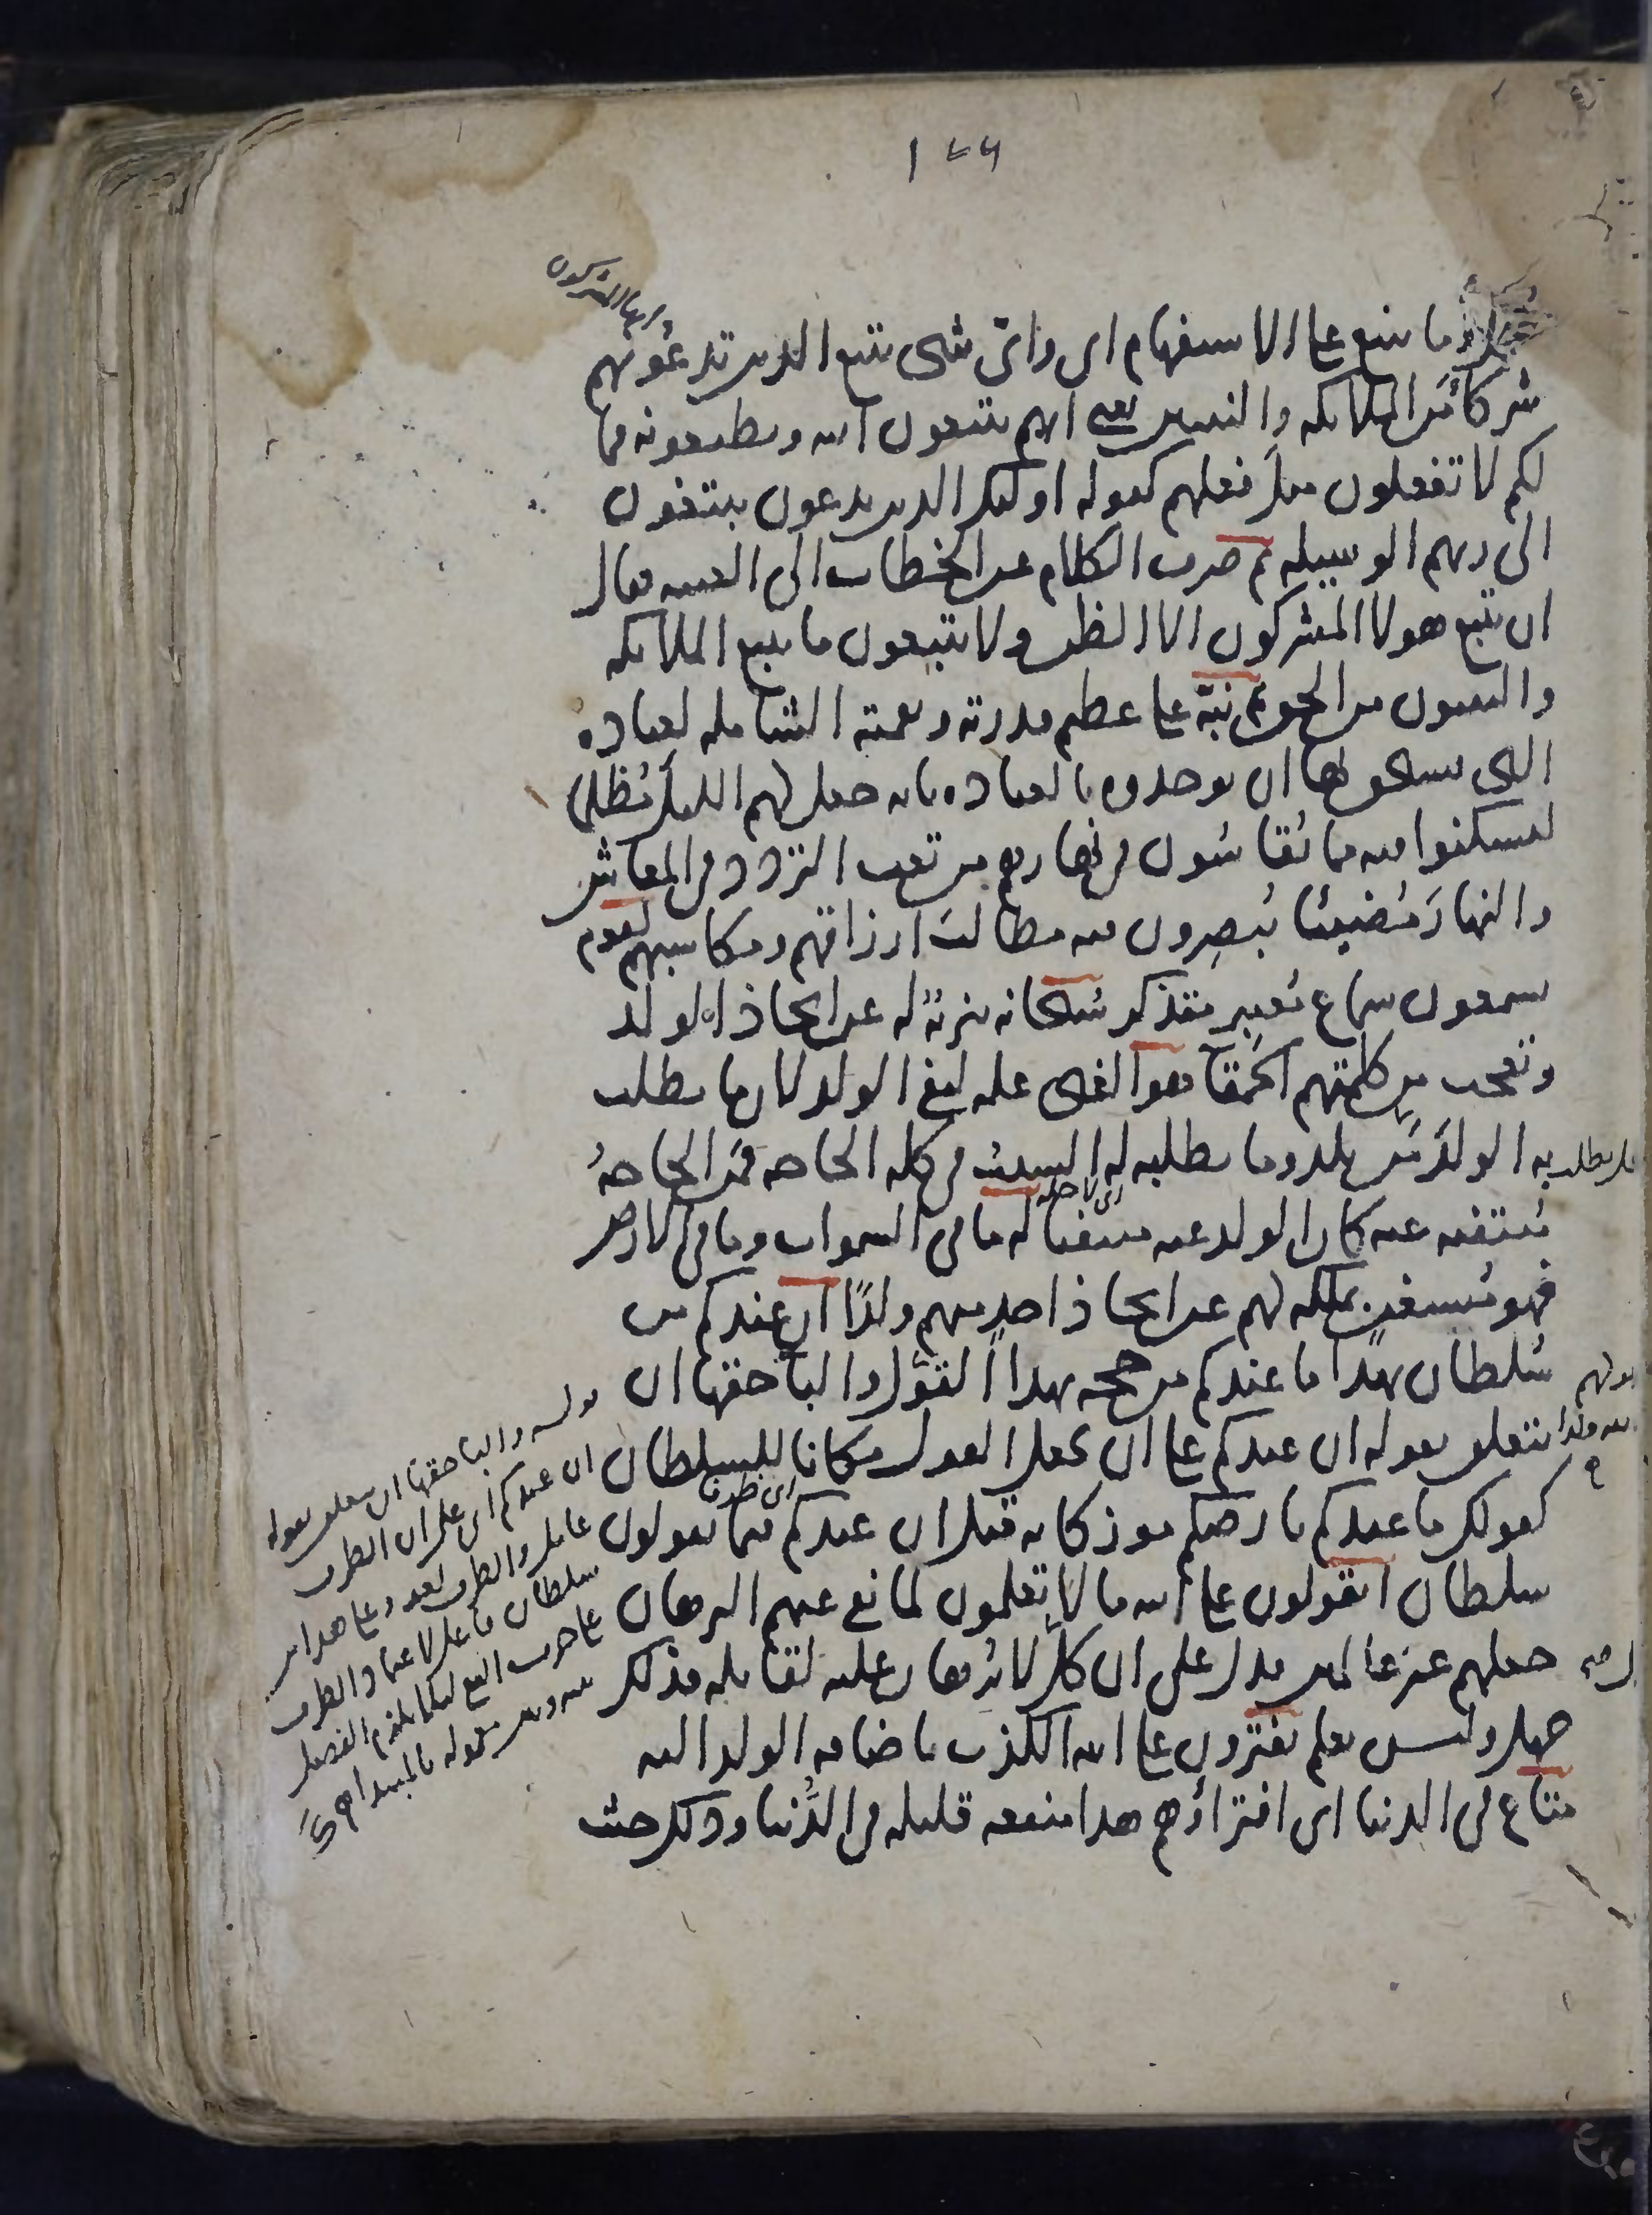 ١٤٩
وما يتبع على الاستفهام اى واىّ شى يتبع الذين تدعونهم
ايها المشركون
شركا من الملائكه والنبيين يعنى انهم يتبعون الله ويطيعونه فما
لكم لا تفعلون مثل فعلهم كقوله اولئك الذين يدعون يبتغون
الى ربهم الوسيله ثم صرف الكلام عن الخطاب الى الغيبه فقال
ان يتبع هولا المشركون الا الظن ولا يتبعون ما يتبع الملائكه
والنبيون من الحق ثم نبّه على عظيم قدرته ونعمته الشامله لعباده
التى يستحق بها ان يوحدوه بالعباده بانه جعل لهم الليل مُظلما
ليسكنوا فيه مما يُقاسُون فى نهارهم من تعب التردد فى المعاش
والنهارَ مُضيئا يُبصِرون فيه مطالبَ ارزاقهم ومكاسبهم لقوم
يسمعون سماع مُعتبِر متذكر سُبحانه تنزيهٌ له عن اتخاذ الولد
وتعجب من كلمتهم الحَمقآ هو الغنى عله لنفى الولد لان ما يطلب
به الولدَ مَن يلد وما يطلبه له السبب فى كله الحاجه فمَن الحاجهُ
مُنتفيه عنه كان الولد عنه منتفيا له ما فى السموات وما فى الارض
فهو مُستغنٍ بملكه لهم عن اتخاذ احدٍ منهم ولدًا ان عندكم من
سُلطان بهذا ما عندكم من حجه بهذا القول والبا حقها ان
يتعلق بقوله ان عندكم على ان يجعل القول مكانا للسلطان
كقولك ما عندكم بارضكم موز كانه قيل ان عندكم فيما تقولون
سلطان اتقولون على الله ما لا تعلمون لما نفى عنهم البرهان
جعلهم غير عالمين فدل على ان كل لا بُرهان عليه لقائله فذلك
جهل وليس بعلم يفترون على الله الكذب باضافه الولد اليه
متاع فى الدنيا اى افتراؤهم هذا منفعه قليله فى الدُّنيا وذلك حيث
قوله والبا حقها ان يتعلق بقوله
ان عندكم اى على ان الظرف